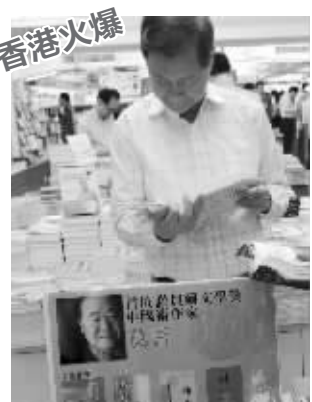 香港火爆
首位諾貝爾文學獎
中國籍作家
莫言